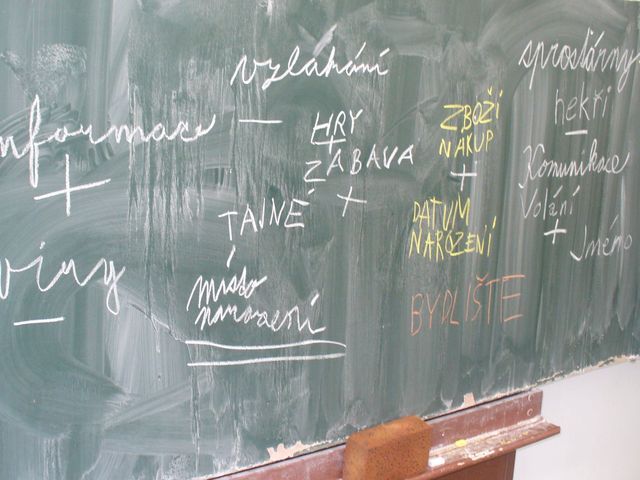 nformace
+
viry
-
vylákání
-
HRY
+
ZÁBAVA
+
TAJNÉ
místo
narození
ZBOŽÍ
NÁKUP
+
DATUM
NAROZENÍ
BYDLIŠTE
sprosťárny
hekři
-
Komunikace
Volání
+
Jméno